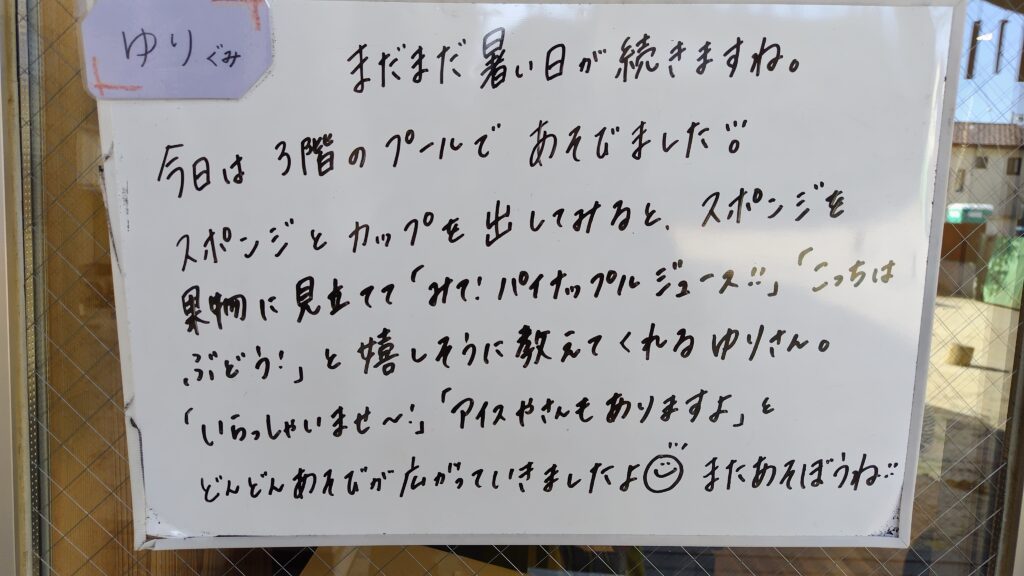 ゆりぐみ
まだまだ暑い日が続きますね。
今日は3階のプールであそびました!!
スポンジとカップを出してみると、スポンジを
果物に見立てて「みて!パイナップルジュース!!」「こっちは
ぶどう!」と嬉しそうに教えてくれるゆりさん。
「いらっしゃいませ〜!」「アイスやさんもありますよ」と
どんどんあそびが広がっていきましたよ☺ またあそぼうね!!